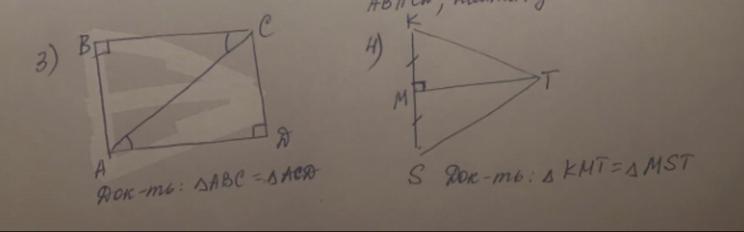 3)
B
C
A
D
Док-ть: △ABC = △ACD
4)
K
M
T
S
Док-ть: △ KMT = △ MST